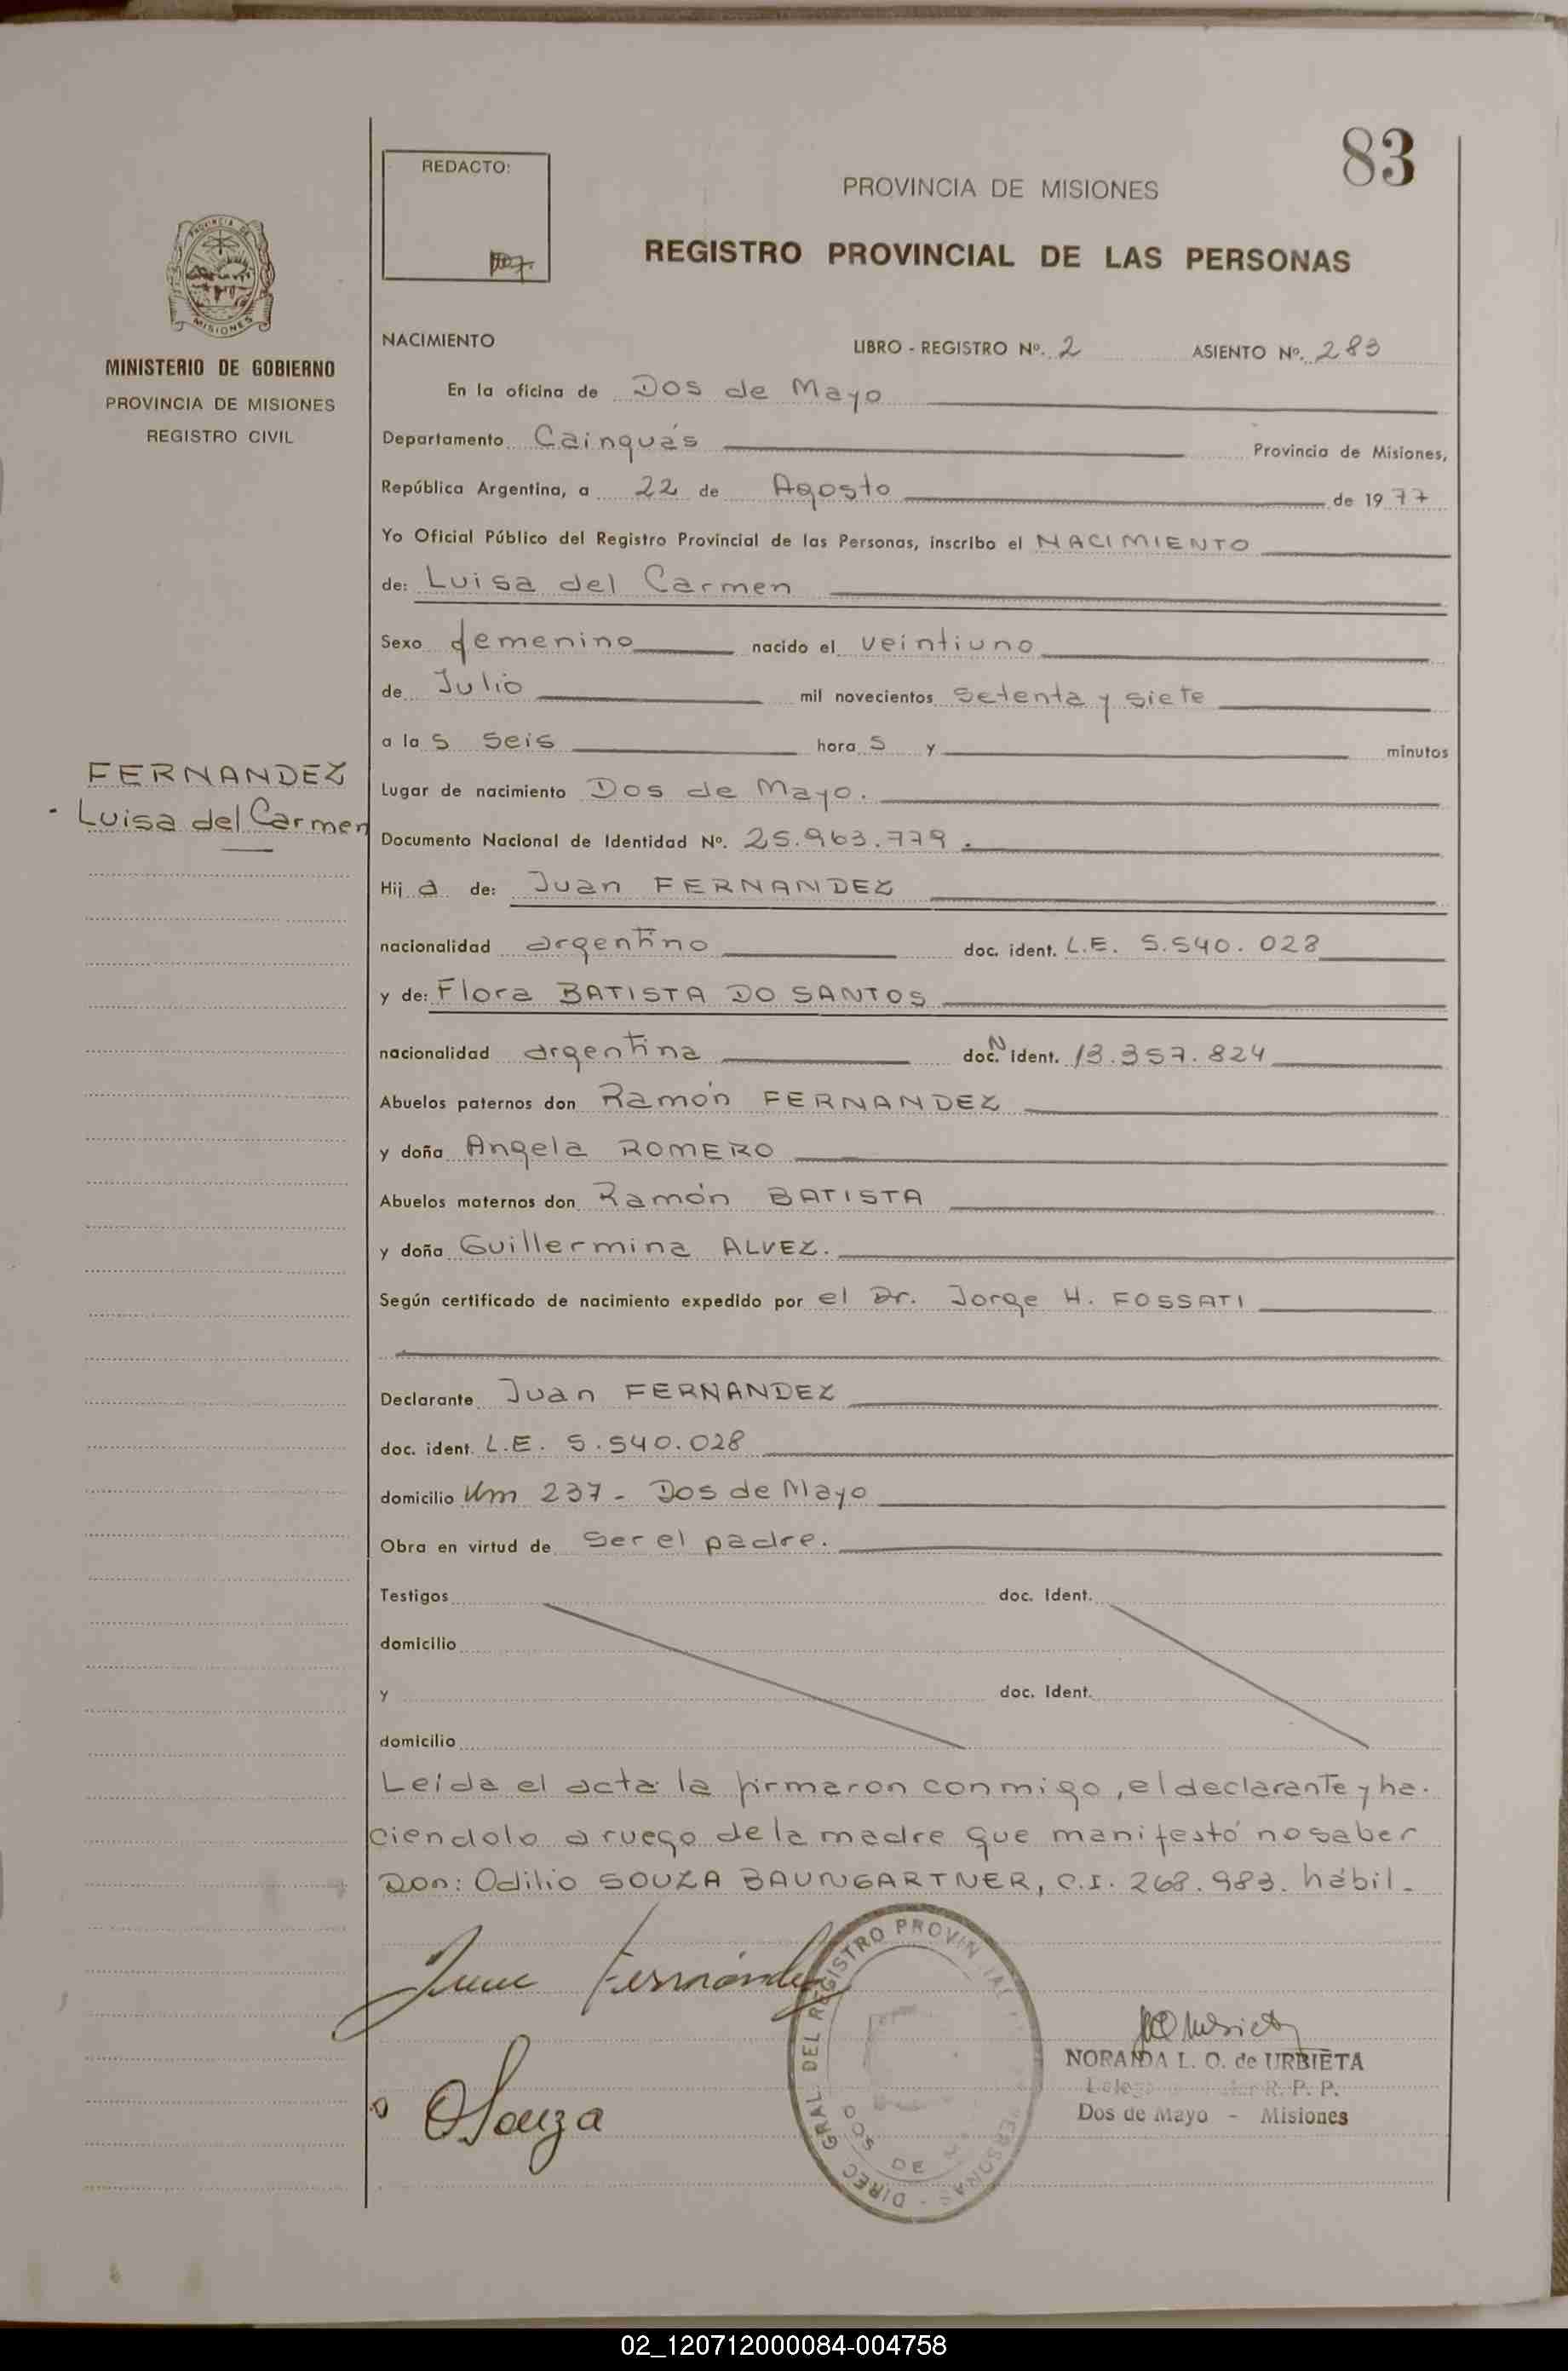 83
REDACTO:
PROVINCIA DE MISIONES
REGISTRO PROVINCIAL DE LAS PERSONAS
PROVINCIA DE
MISIONES
MINISTERIO DE GOBIERNO
PROVINCIA DE MISIONES
REGISTRO CIVIL
NACIMIENTO LIBRO - REGISTRO Nº. 2 ASIENTO Nº. 283
En la oficina de Dos de Mayo
Departamento Cainguás Provincia de Misiones,
República Argentina, a 22 de Agosto de 1977
Yo Oficial Público del Registro Provincial de las Personas, inscribo el NACIMIENTO
de: Luisa del Carmen
Sexo femenino nacido el veintiuno
de Julio mil novecientos setenta y siete
a las seis horas y minutos
FERNANDEZ
Luisa del Carmen
Lugar de nacimiento Dos de Mayo.
Documento Nacional de Identidad Nº. 25.963.779.
Hija de: Juan FERNANDEZ
nacionalidad argentino doc. ident. L.E. 5.540.028
y de: Flora BATISTA DO SANTOS
nacionalidad argentina doc. N ident. 13.357.824
Abuelos paternos don Ramón FERNANDEZ
y doña Angela ROMERO
Abuelos maternos don Ramón BATISTA
y doña Guillermina ALVEZ.
Según certificado de nacimiento expedido por el Dr. Jorge H. FOSSATI
Declarante Juan FERNANDEZ
doc. ident. L.E. 5.540.028
domicilio Km 237 - Dos de Mayo
Obra en virtud de ser el padre.
Testigos doc. Ident.
domicilio
y doc. Ident.
domicilio
Leída el acta la firmaron conmigo, el declarante y ha-
ciendolo a ruego de la madre que manifestó no saber
Don: Odilio SOUZA BAUNGARTNER, C.I. 268.983. hábil.
Juan Fernández
DIREC GRAL. DEL REGISTRO PROVINCIAL PERSONAS
DOS DE
NORANDA L. O. de URBIETA
R. P. P.
Dos de Mayo - Misiones
OSouza
02_120712000084-004758